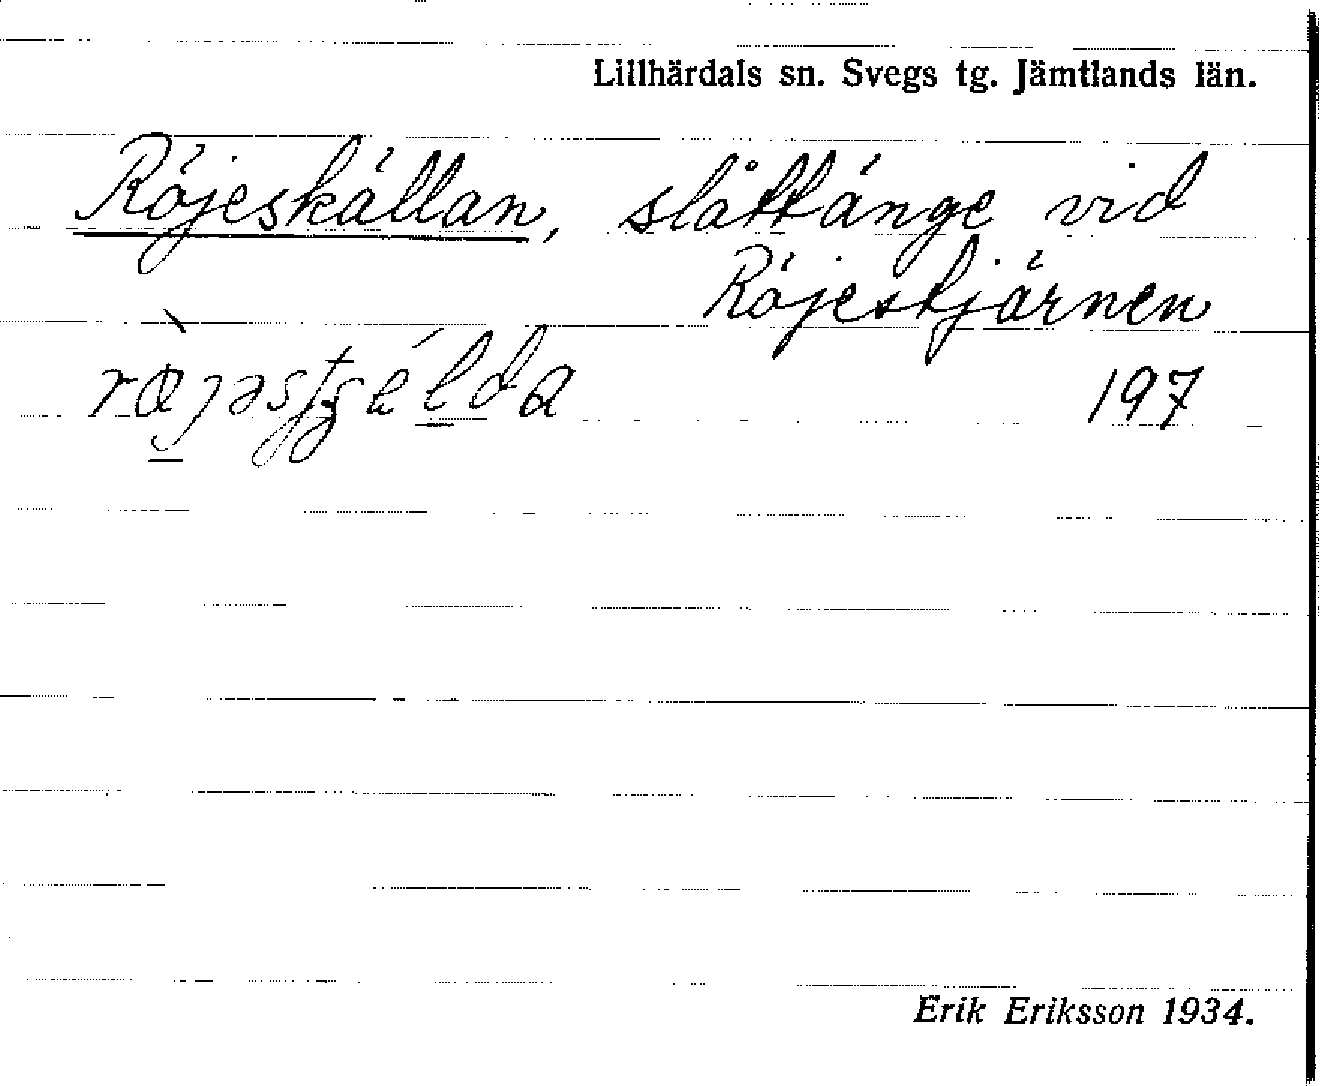 Lillhärdals sn. Svegs tg. Jämtlands län.
Röjeskällan, slåttänge vid
Röjestjärnen
197
Erik Eriksson 1934.